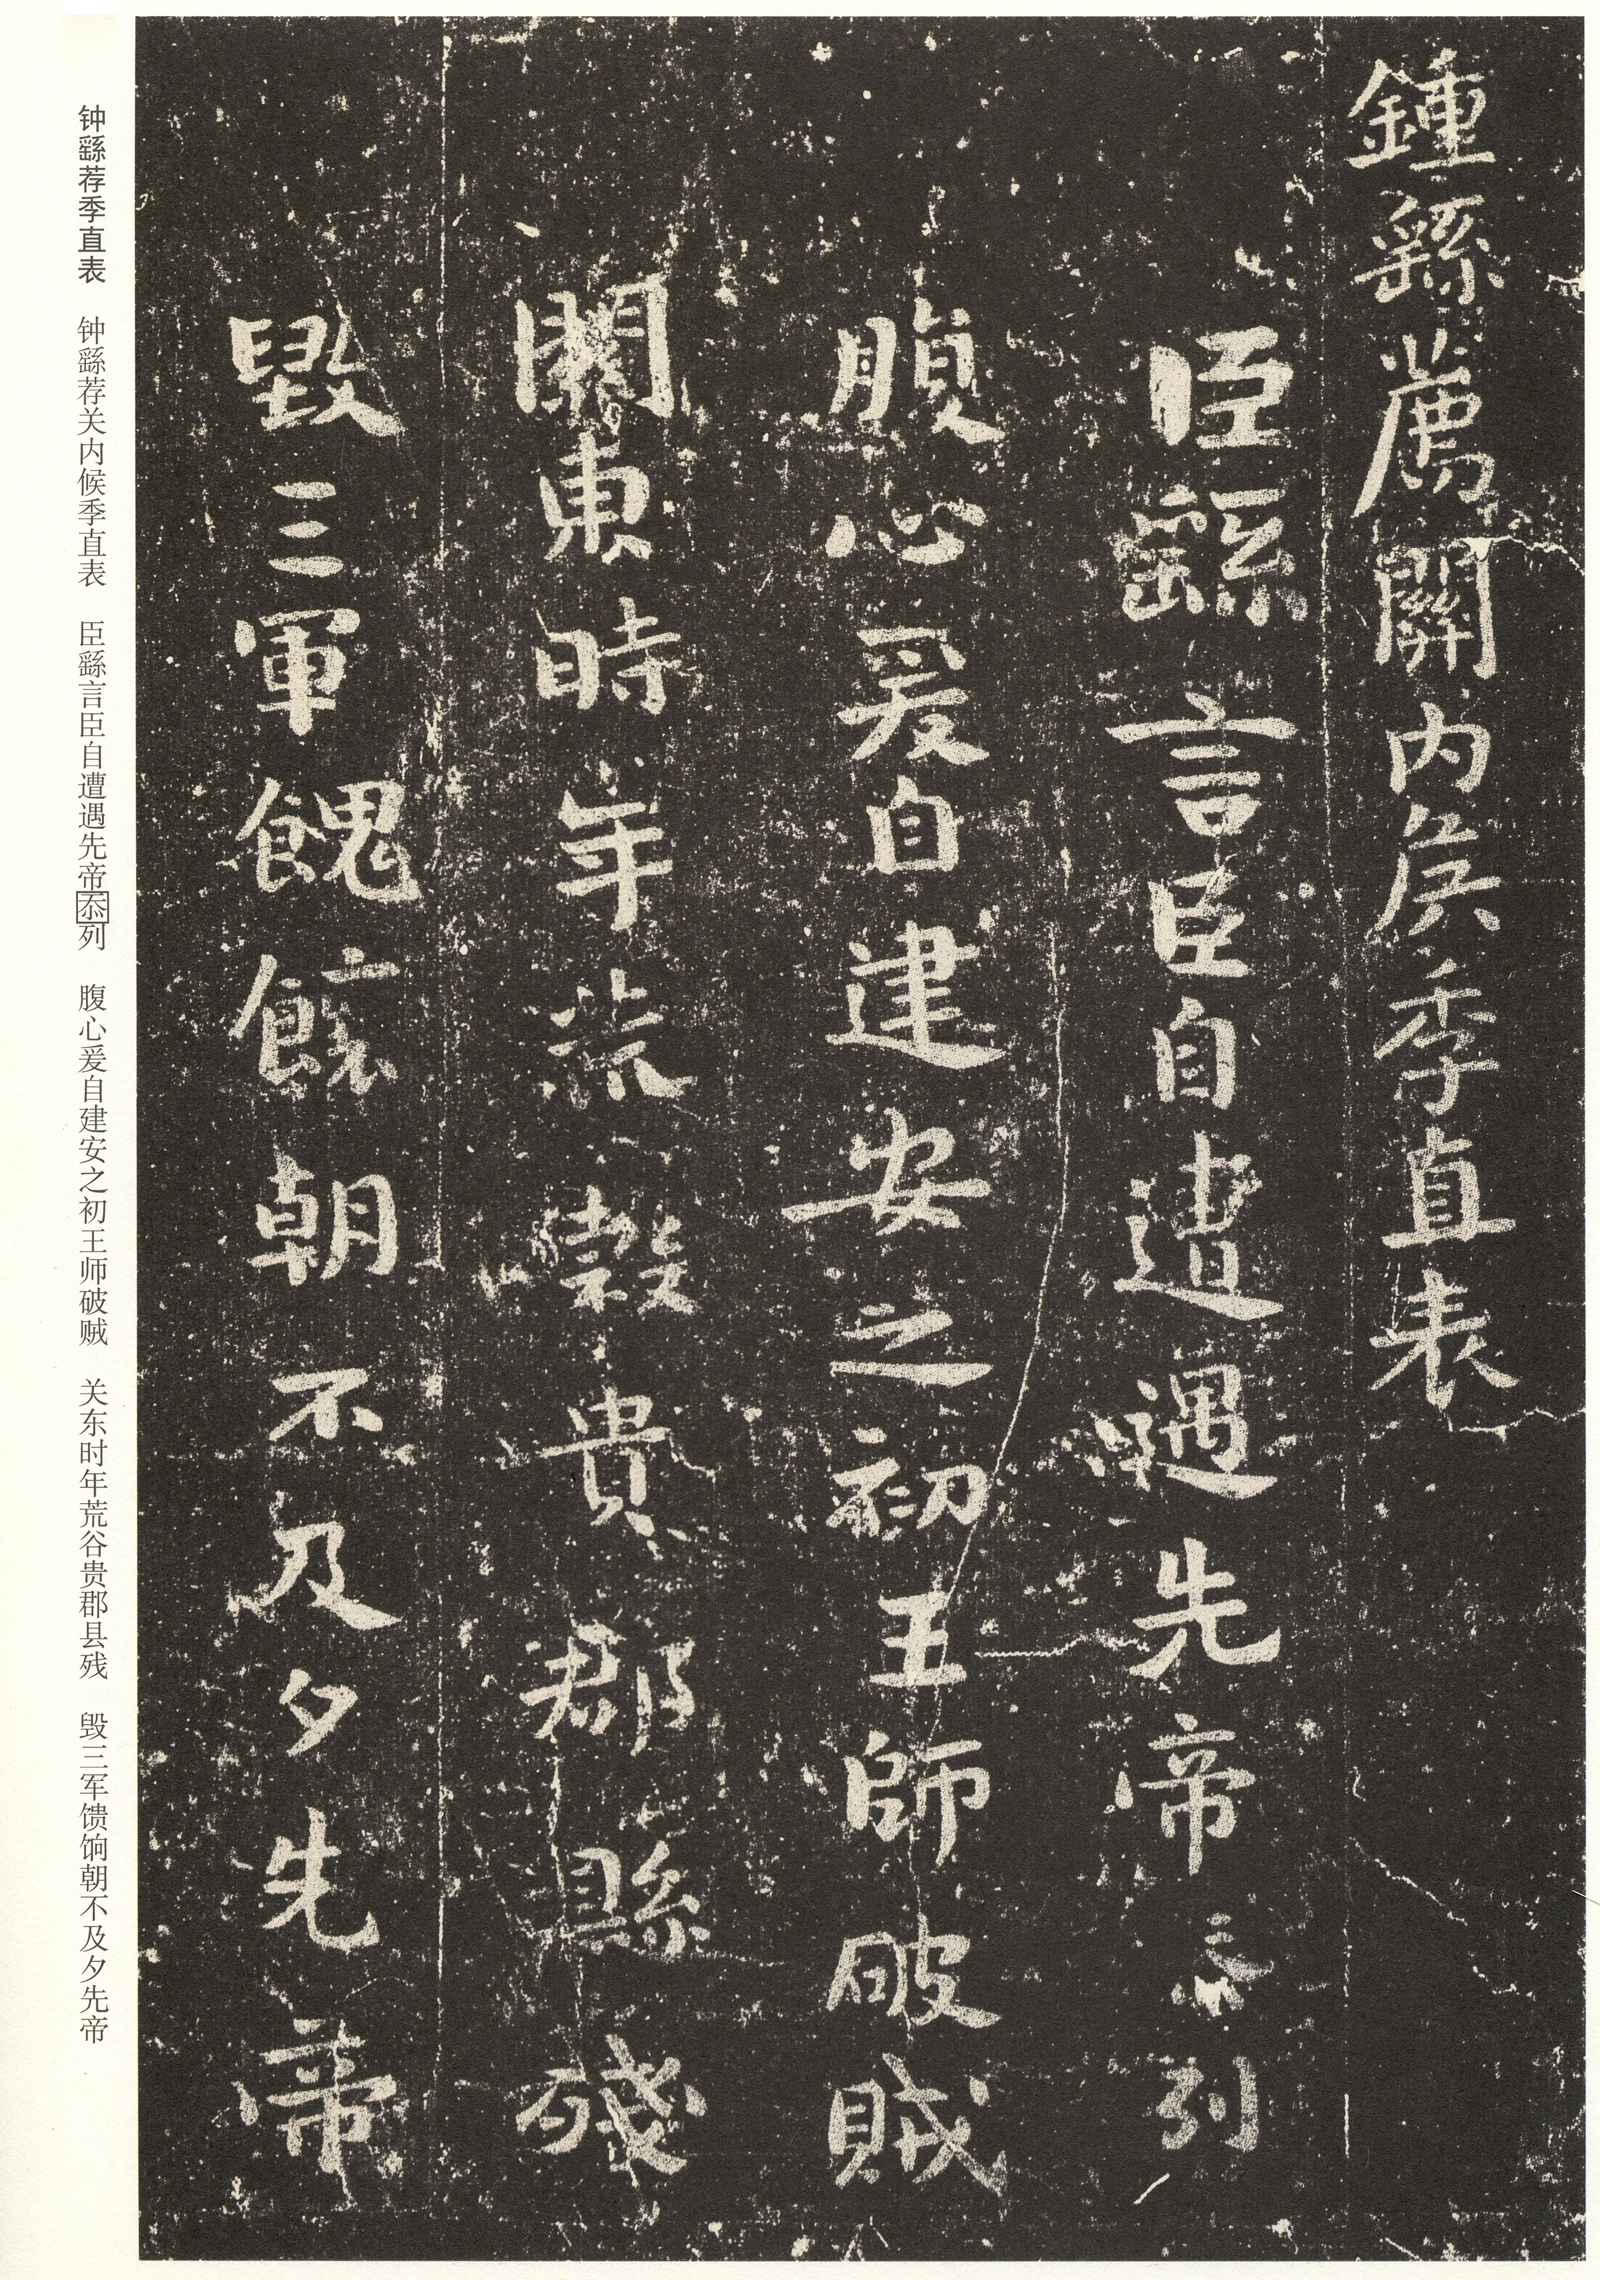 鍾繇薦關内矦季直表
臣繇言臣自遭遇先帝忝列
腹心爰自建安之初王師破賊
關東時年荒穀貴郡縣殘
毀三軍餽饟朝不及夕先帝
钟繇荐季直表 钟繇荐关内候季直表 臣繇言臣自遭遇先帝忝列 腹心爰自建安之初王师破贼 关东时年荒谷贵郡县残 毁三军馈饷朝不及夕先帝